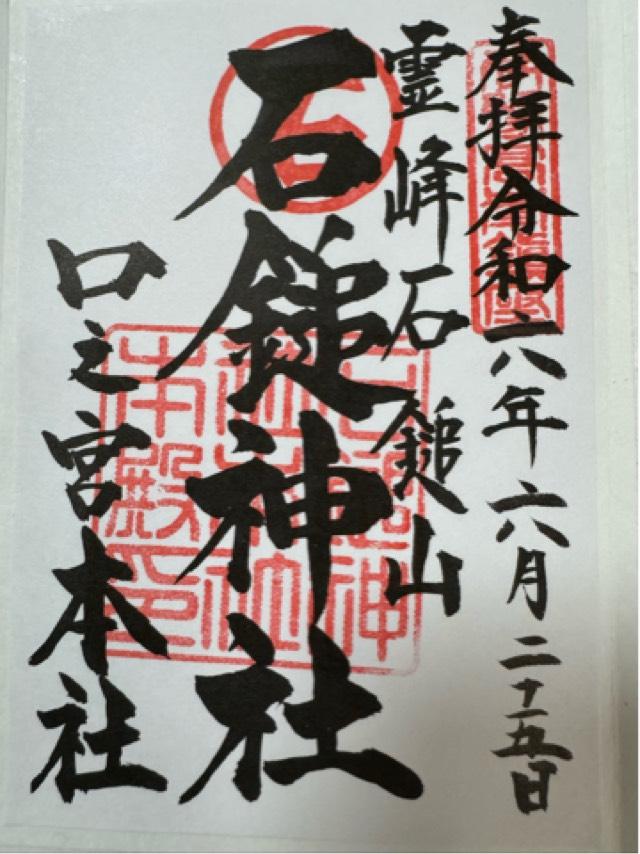 奉拝令和六年六月二十五日
霊峰石鎚山
石鎚神社
口之宮本社
石
本殿印